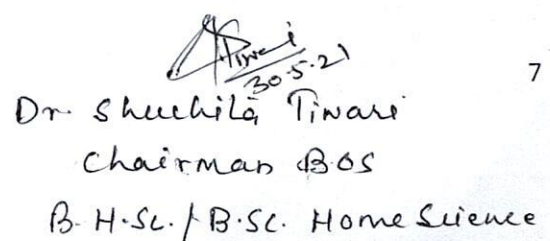 Tiwari
30.5.21
7
Dr. Shuchita Tiwari
Chairman BOS
B.H.Sc. / B.Sc. Home Science